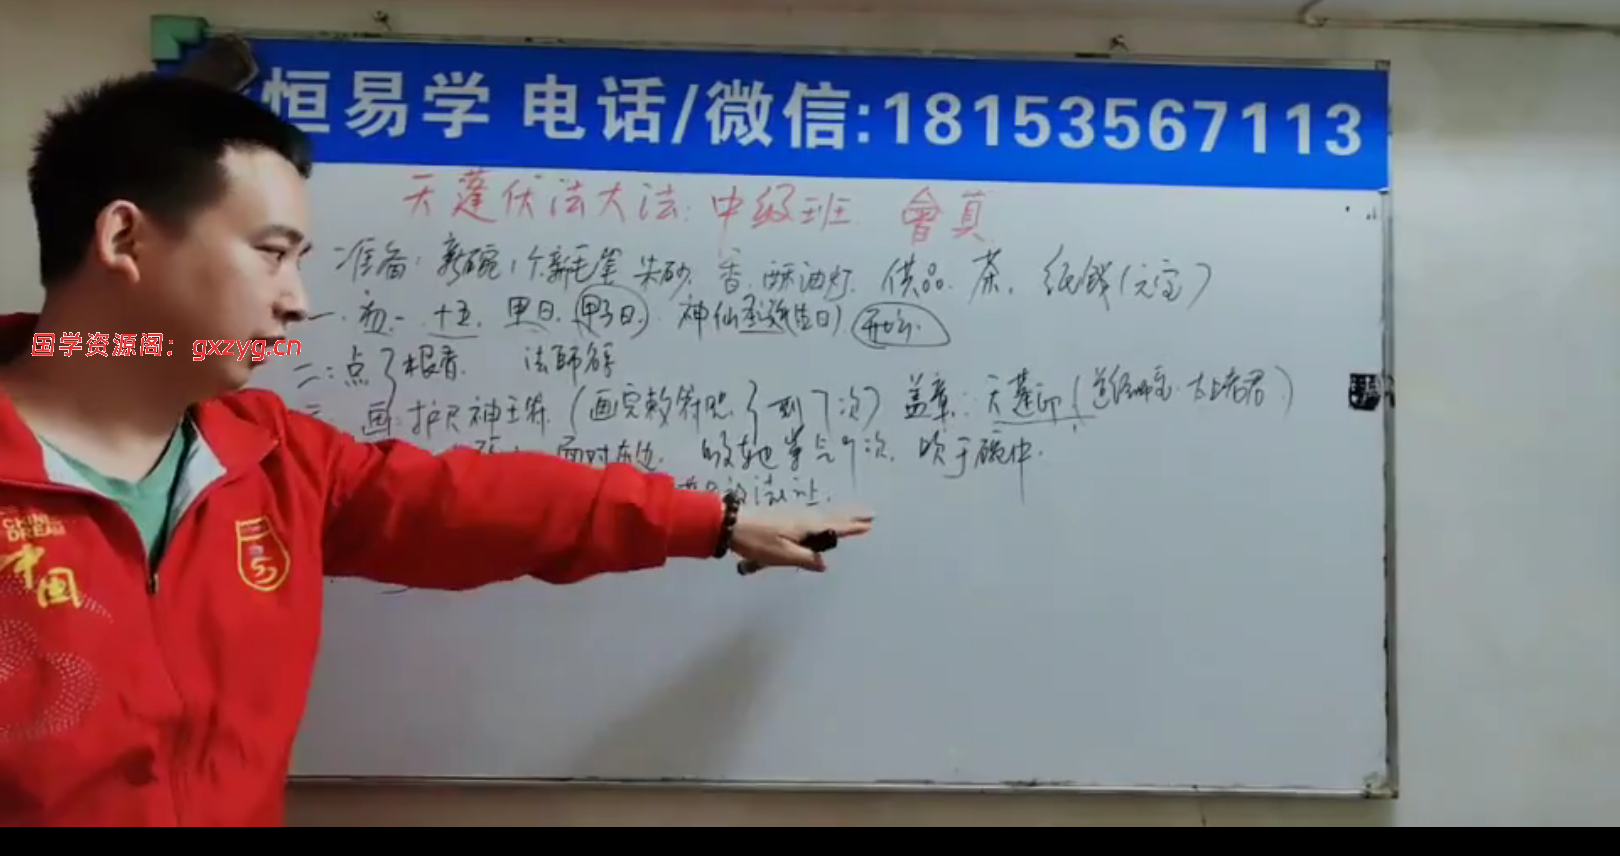 恒易学 电话/微信:18153567113
天蓬伏法大法: 中级班 會真
准备: 新碗1个 新毛笔 朱砂. 香. 酥油灯. 供品. 茶. 纸钱(元宝)
一. 初一. 十五. 甲日. (甲子日). 神仙圣诞(生日)
国学资源阁: gxzyg.cn
二: 点3根香. 法师
画: 护 神王符. (画完敕符咒 3到7次) 盖章: 天蓬印 (道经师宝. 太上老君)
面对东边. 次. 吹于碗中.
CHINA DREAM
中国